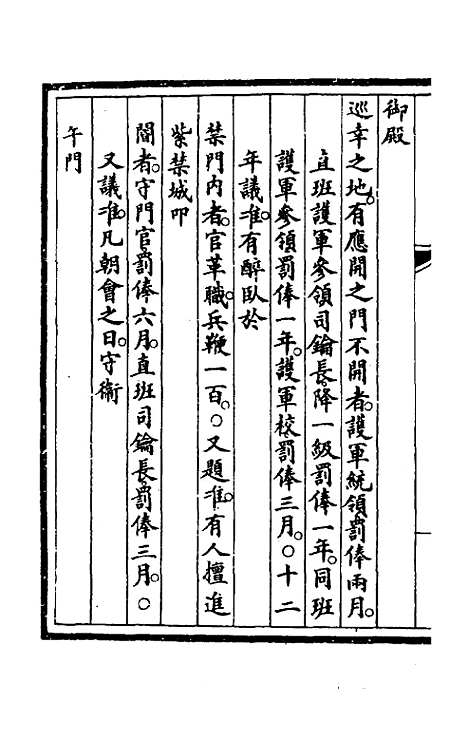 御殿
巡幸之地。有應開之門不開者。護軍統領罰俸兩月。
直班護軍參領司鑰長。降一級罰俸一年。同班
護軍參領罰俸一年。護軍校罰俸三月。○十二
年議准。有醉臥於
禁門內者。官革職。兵鞭一百。○又題准。有人擅進
紫禁城叩
閽者。守門官罰俸六月。直班司鑰長罰俸三月。○
又議准。凡朝會之日。守衞
午門